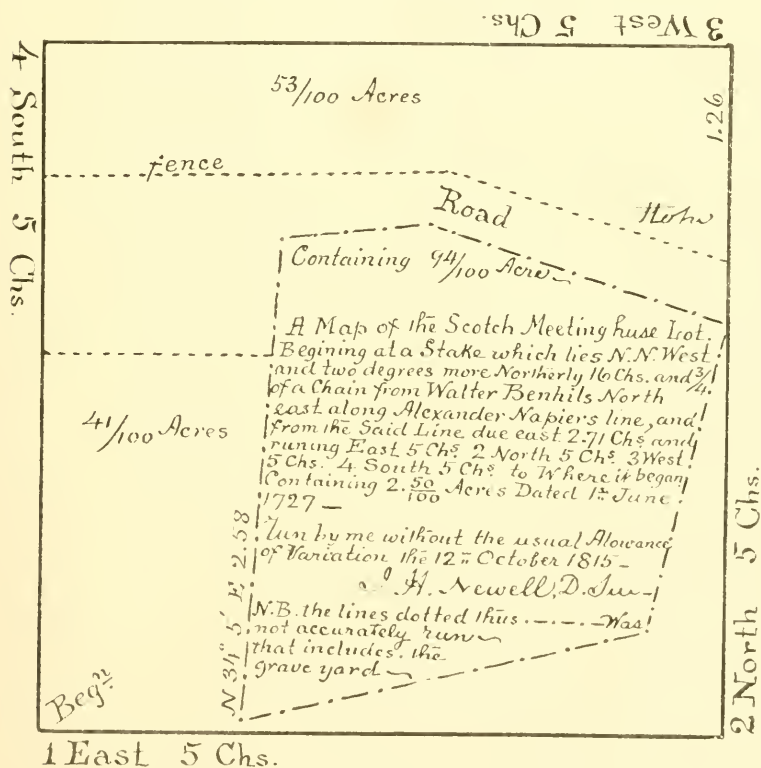 3 West 5 Chs.
4 South 5 Chs.
53/100 Acres
1.26
fence
Road
Containing 94/100 Acre
A Map of the Scotch Meeting huse Lot.
Begining at a Stake which lies N.N. West
and two degrees more Northerly 16 Chs. and 3/4
of a Chain from Walter Benhils North
east along Alexander Napiers line, and
from the Said Line due east 2.71 Chs and
runing East 5 Chs. 2 North 5 Chs. 3 West
5 Chs. 4 South 5 Chs. to Where it began
Containing 2.50/100 Acres Dated 1st June
1727 —
Run by me without the usual Alowance
of Variation the 12th October 1815 —
H. Newell, D.
N.B. the lines dotted thus .—.—.— Was
not accurately run
that includes the
grave yard
41/100 Acres
N 34° 5' E 2.58
Begn
1 East 5 Chs.
2 North 5 Chs.